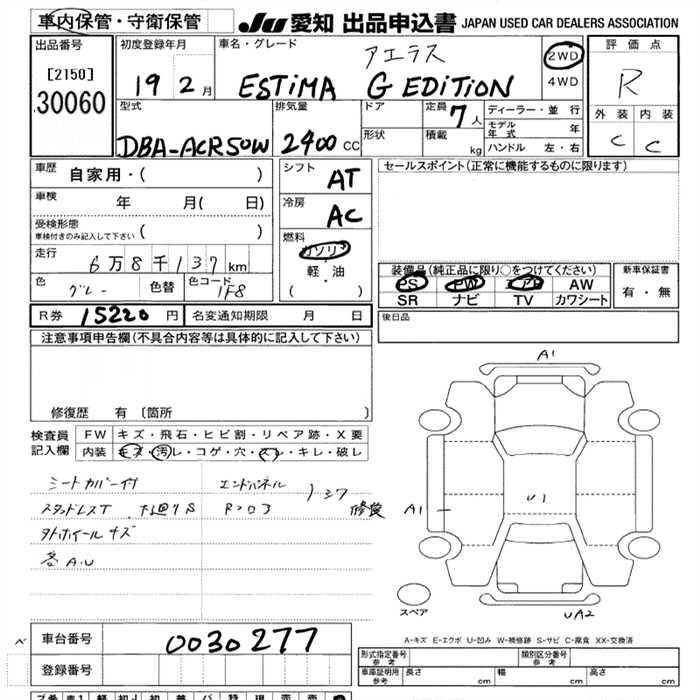 車内保管・守衛保管 JU 愛知 出品申込書 JAPAN USED CAR DEALERS ASSOCIATION
出品番号 [2150] 30060
初度登録年月 19 2 月
車名・グレード アエラス ESTIMA G EDITION
2WD 4WD
評価点 R
外装 内装 C C
型式 DBA-ACR50W
排気量 2400 CC
ドア 形状
定員 7 人
積載 kg
ディーラー・並行
モデル年式 年
ハンドル 左・右
車歴 自家用・( )
車検 年 月( 日)
受検形態 車検付きのみ記入して下さい ( )
走行 6万8千137 km
色 グレー 色替 色コード 1F8
シフト AT
冷房 AC
燃料 ガソリン 軽・油 ( )
セールスポイント(正常に機能するものに限ります)
装備品(純正品に限り○をつけてください)
PS PW エアB AW
SR ナビ TV カワシート
新車保証書 有・無
R券 15220 円 名変通知期限 月 日
後日品
注意事項申告欄(不具合内容等は具体的に記入して下さい)
修復歴 有 〔箇所 〕
検査員記入欄 FW キズ・飛石・ヒビ割・リペア跡・X要
内装 キズ・汚レ・コゲ・穴・スレ・キレ・破レ
シートカバー付
エンドパネル
修復
各A.U
A1
A1
U1
UA2
スペア
A-キズ E-エクボ U-凹み W-補修跡 S-サビ C-腐食 XX-交換済
車台番号 0030277
登録番号
型式指定番号 参考 類別区分番号 参考
車庫証明用 参考 長さ cm 幅 cm 高さ cm